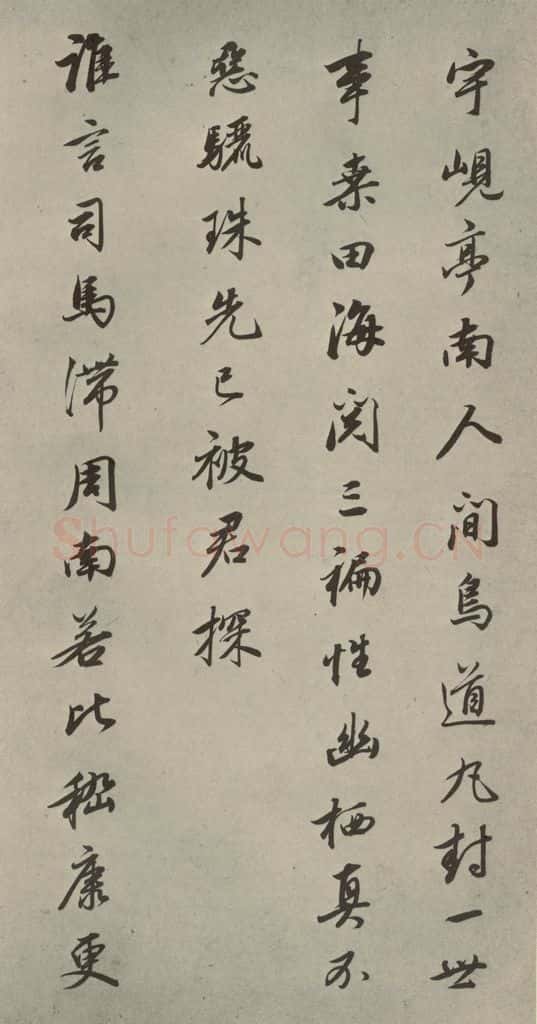 宇峴亭南人間鳥道丸封一世
事桑田海閱三褊性幽栖真不
惡驪珠先已被君探
誰言司馬滯周南若比嵇康更
Shufawang.CN